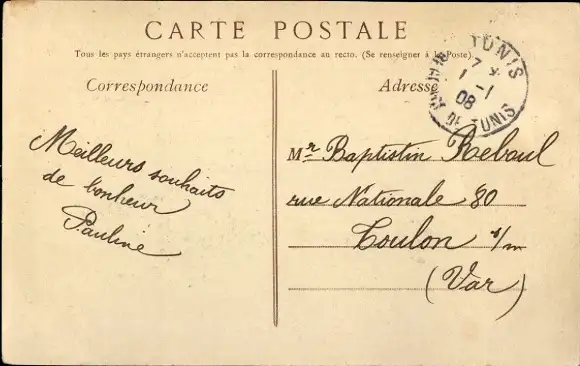 CARTE POSTALE
Tous les pays étrangers n'acceptent pas la correspondance au recto. (Se renseigner à la Poste).
Correspondance
Adresse
TUNIS
7 *
1 -1
08
TUNIS
Meilleurs souhaits
de bonheur
Pauline
Mr Baptistin Reboul
rue Nationale 80
Toulon s/m
(Var)